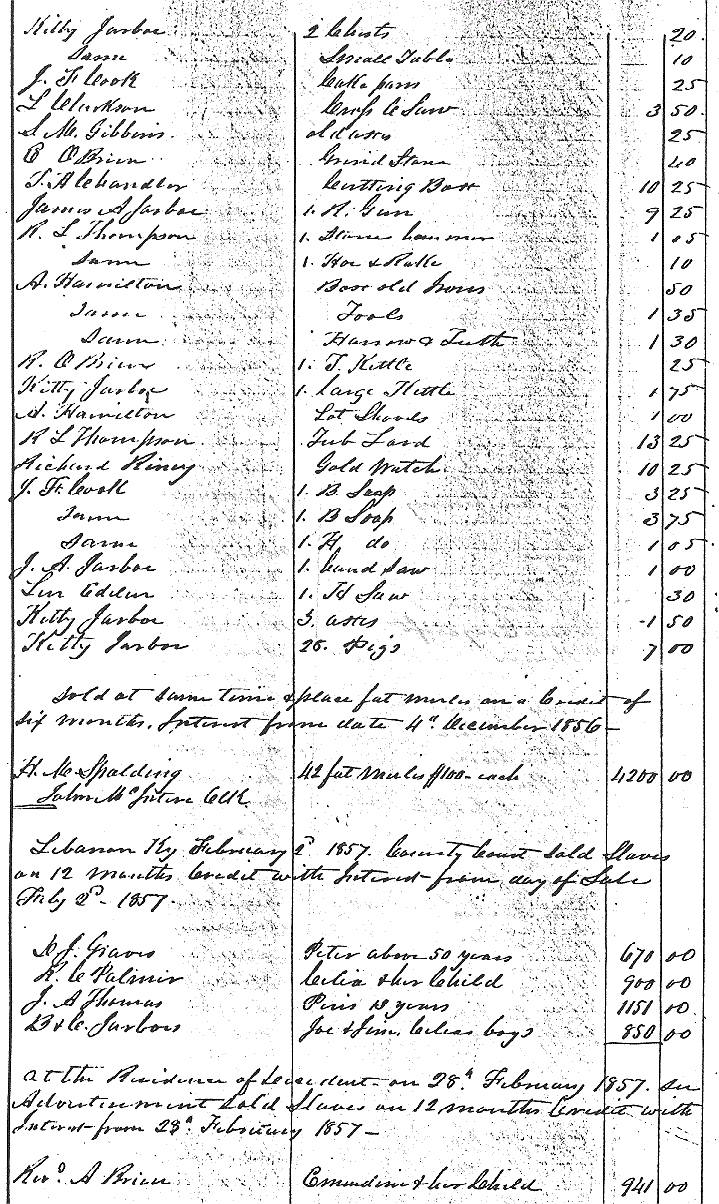 Kitty Jarboe 2 Chests 20
Same Small Table 10
J. F. Cook Cake pans 25
L Clarkson Cross C Saw 3 50
S. M. Gibbins old axes 25
C O Brien Grind Stone 40
T. A Chandler Cutting Box 10 25
James A Jarboe 1. R. Gun 9 25
R. L Thompson 1. Stone hammer 1 05
Same 1. Hoe & Rake 10
A. Hamilton Box old Irons 50
Same Tools 1 35
Same Harrow & Teeth 1 30
R. O Brien 1. T. Kettle 25
Kitty Jarboe 1. Large Kettle 1 75
A. Hamilton Lot Shovels 1 00
R L Thompson Tub Lard 13 25
Richard Riney Gold Watch 10 25
J. F. Cook 1. B Soap 3 25
Same 1. B Soap 3 75
Same 1. H do 1 05
J. A. Jarboe 1. hand Saw 1 00
Edelen 1. H Saw 30
Kitty Jarboe 3. axes 1 50
Kitty Jarboe Pigs 7 00
Sold at same time & place fat mules on a Credit of
six months. Interest from date 4th December 1856-
H. M Spalding 42 fat mules $100- each 4200 00
John McIntire Clk
Lebanon Ky February 2d 1857. County Court Sold Slaves
on 12 months Credit with Interest from day of Sale
Feby 2d- 1857.
J. Graves Peter above 50 years 670 00
R. C Palmer Celia & her Child 900 00
J. A Thomas years 1151 00
B & C. Jarboe Joe & Jim. Celias boys 850 00
at the Residence of decedent on 28th February 1857. see
Advertisement Sold Slaves on 12 months Credit with
Interest from 28th February 1857-
Revd. A Brien & her Child 941 00